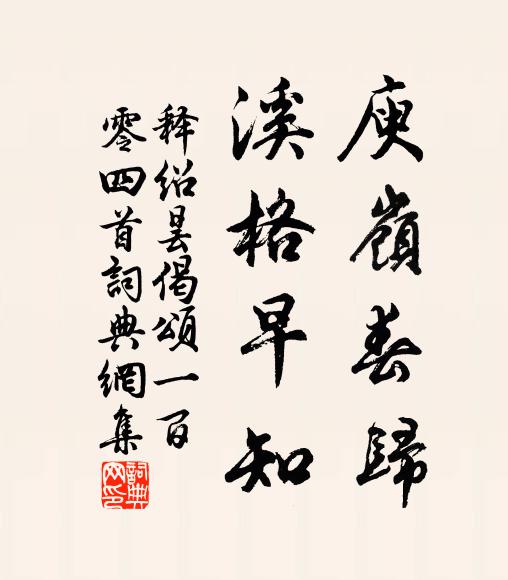 庾嶺春歸
溪格早知
释绍昙偈頌一百
零四首詞典網集
詞典网印